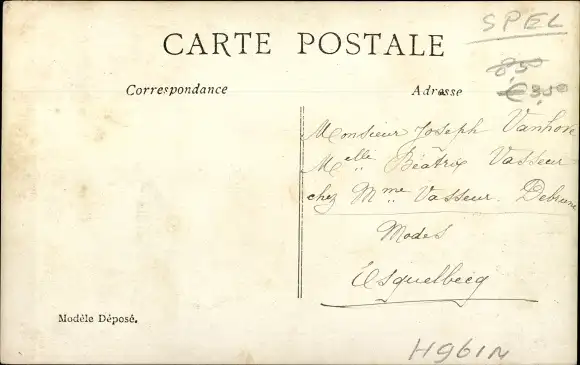 SPEL
CARTE POSTALE
85
€3,50
Correspondance
Adresse
Monsieur Joseph Vanhove
Melle Béatrix Vasseur
chez Mme Vasseur. 
Modes
Esquelbecq
Modèle Déposé.
H961N